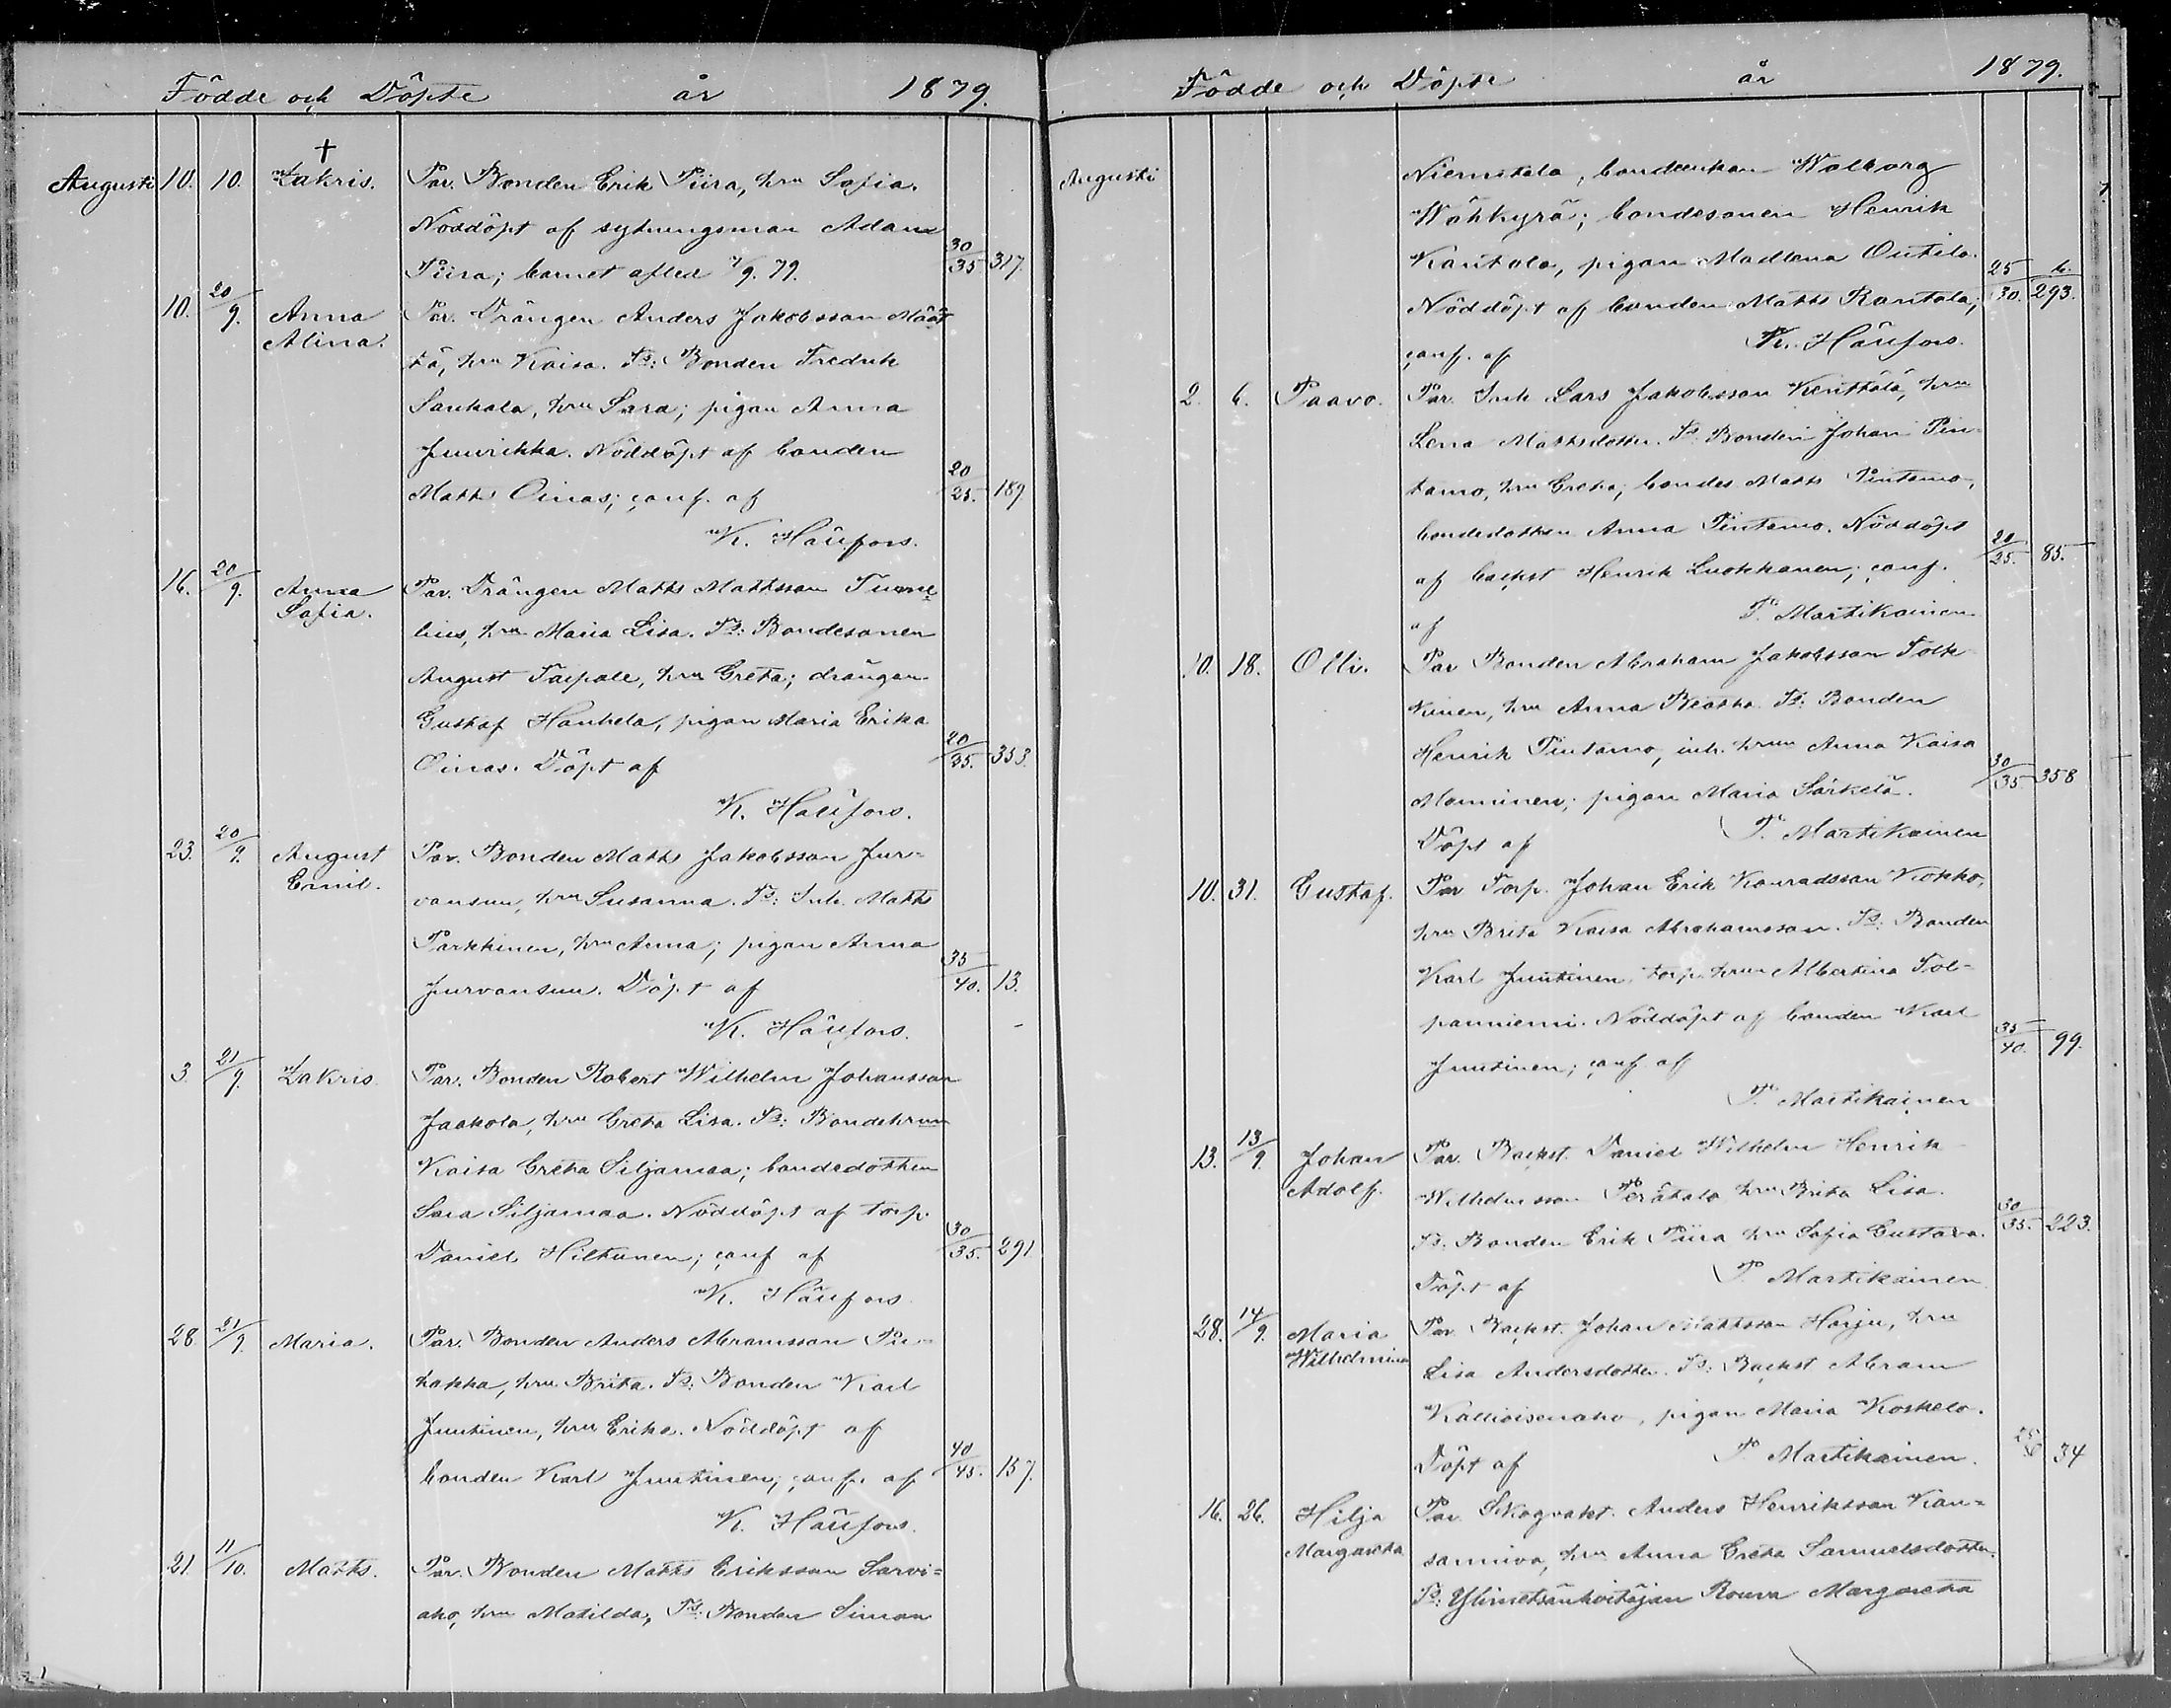 Födde och Döpte år 1879.
Augusti 10. 10. † Zakris. Par. Bonden Erik Piira, hru Sofia.
Nöddöpt af sytningsman Adam
Piira; barnet afled 7/9. 79. 30/35 317.
10. 20/9. Anna Par. Drängen Anders Jakobsson Määt
Alina. tä, hru Kaisa. Ts: Bonden Fredrik
Sankala, hru Sara; pigan Anna
Juurikka. Nöddöpt af bonden
Matts Oinas; conf. af 20/25. 189
K. Häüfors.
16. 20/9. Anna Par. Drängen Matts Mattsson
Sofia. lius, hru Maria Lisa. Ts: Bondesonen
August Taipale, hru Greta; drängen
Gustaf Hanhela, pigan Maria Erika
Oinas. Döpt af 20/25. 353.
K. Häüfors.
23. 20/9. August Par. Bonden Matts Jakobsson Jur=
Emil. vansuu, hru Susanna. Ts: Inh. Matts
Parkkinen, hru Anna; pigan Anna
Jurvansuu. Döpt af 35/40. 13.
K. Häüfors.
3. 21/9. Zakris Par. Bonden Robert Wilhelm Johansson
Jaakola, hru Greta Lisa. Ts: Bondehrun
Kaisa Greta Siljamaa; bondedottren
Sara Siljamaa. Nöddöpt af torp.
Daniel Hiltunen; conf af 30/35. 291
K. Häüfors
28 21/9. Maria. Par. Bonden Anders Abramsson Pu-
hakka, hru Brita. Ts: Bonden Karl
Juntinen, hru Erika. Nöddöpt af
bonden Karl Juntinen; conf. af 40/45. 157.
K. Häüfors.
21 11/10. Matts. Par. Bonden Matts Eriksson Sarvi=
aho, hru Matilda, Ts: Bonden Simon
Födde och Döpte år 1879.
Augusti Niemitalo, bondeenkan Walborg
Wähkyrä; bondesonen Henrik
Kantola, pigan Madlena Outila.
Nöddöpt af bonden Matts Rantala; 25/30. 293.
conf. af K. Häüfors.
2. 6. Paavo. Par. Inh Lars Jakobsson Kenttälä, hru
Lena Mattsdotter. Ts. Bonden Johan Pin
tamo, hru Greta; bondes. Matts Pintamo,
bondedottren Anna Pintamo. Nöddöpt
af backst Henrik Luokkanen; conf. 20/25. 85.
af P. Martikainen
10. 18. Olli. Par Bonden Abraham Jakobsson Tolk
kinen, hru Anna Beatha. Ts: Bonden
Henrik Pintamo, inh. hrun Anna Kaisa
Manninen; pigan Maria Särkelä. 30/35. 358
Döpt af P. Martikainen
10. 31. Gustaf. Par Torp. Johan Erik Konradsson Kokko,
hru Brita Kaisa Abrahamsson. Ts: Bonden
Karl Juntinen, torp. hrun Albertina Tol-
panniemi. Nöddöpt af bonden Karl
Juntinen; conf af 35/40. 99.
P. Martikainen
13. 13/9. Johan Par. Backst. Daniel Wilhelm Henrik
Adolf. Wilhelmsson Perätalo hru Brita Lisa.
Ts. Bonden Erik Piira hru Sofia Gustava. 30/35. 223.
Döpt af P. Martikainen
28. 14/9. Maria Par. Backst. Johan Mattsson Harju, hru
Wilhelmina Lisa Andersdotter. Ts: Backst Abram
Kallioisenaho, pigan Maria Koskelo.
Döpt af P. Martikainen. 34
16. 26. Hilja Par. Skogvakt. Anders Henriksson Kan=
Margareta saniva, hru Anna Greta Samuelsdotter.
Ts: Ylimetsänhoitajan Rouva Margareta